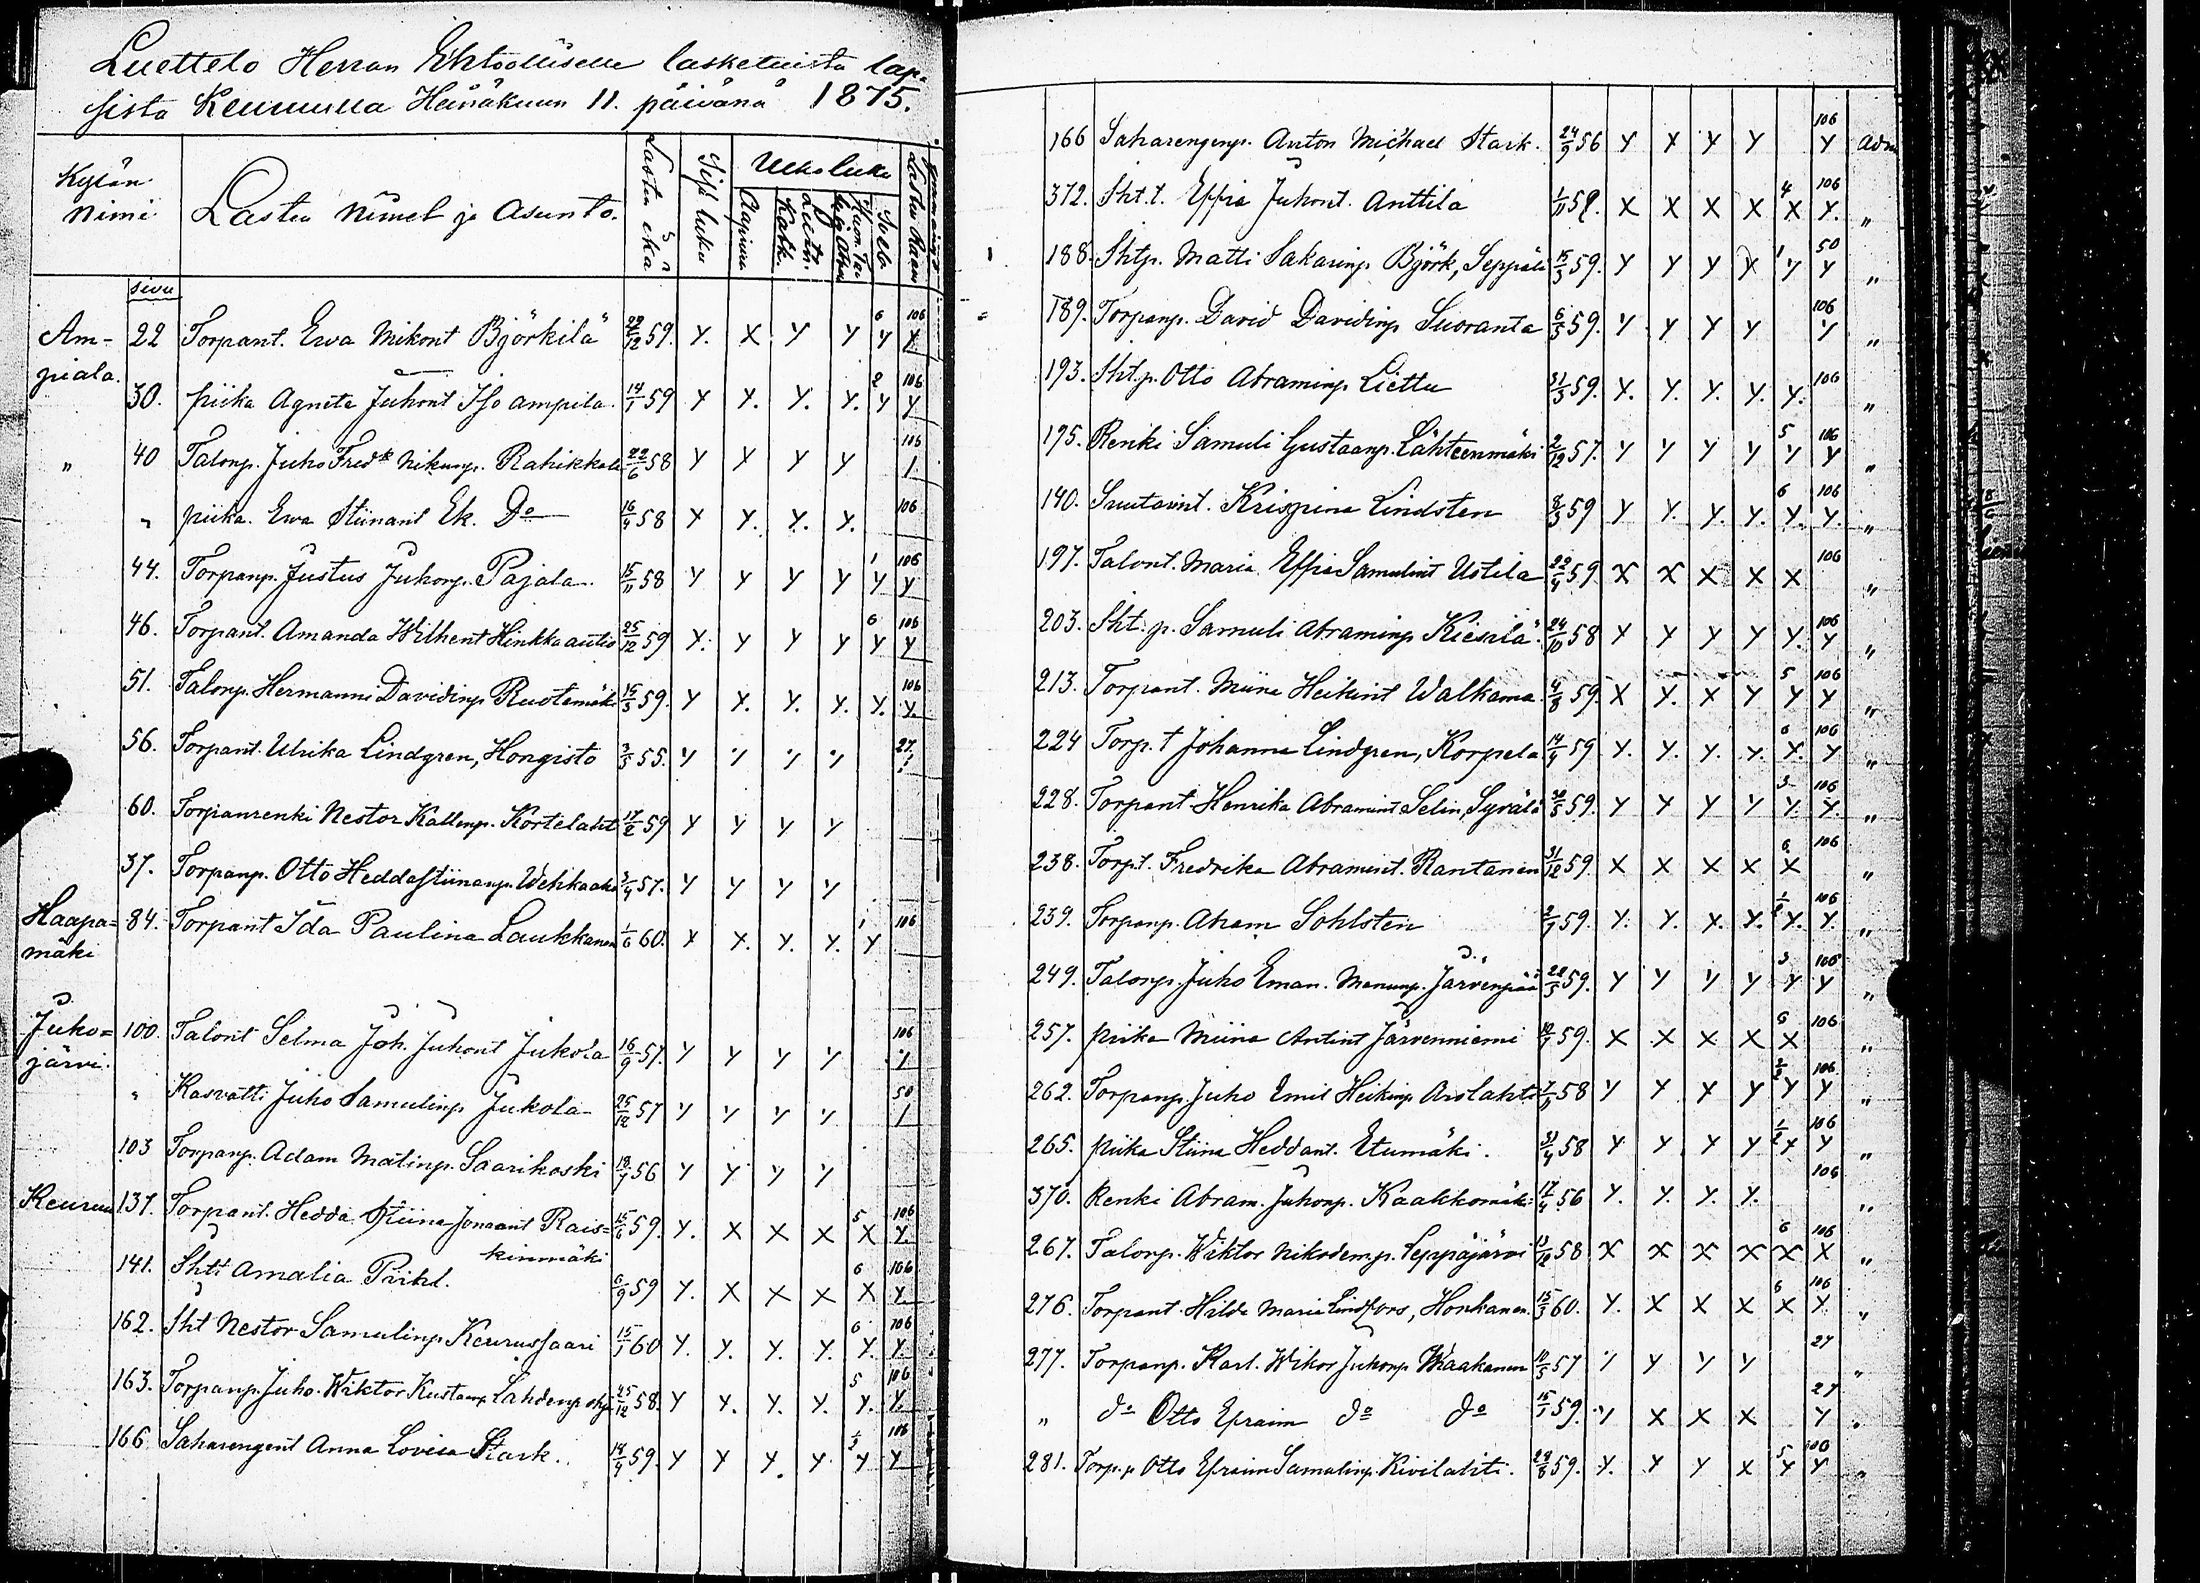 Luettelo Herran Ehtoolliselle lasketuista lap-
sista Keuruulla Heinäkuun 11. päivänä 1875.
Kylän Nimi Lasten nimet ja asunto. Lasten ikä Sisä luku Ulko luku
sivu
Am- 22 Torpant. Ewa Mikont Björkilä 59. Y. X Y Y 6 Y 106 Y
piala. 30. piika Agneta Juhont Iso ampiala 14/1 59 Y Y. Y. Y. 2 Y 106 Y
" 40 Talonp. Juho Fredk Nikunp. Rahikkala 22/6 58 Y Y Y Y 106 1
" piika. Ewa Stiinant Ek. Do 16/4 58 Y Y. Y. Y. 106
44. Torpanp. Justus Juhonp. Pajala. 15/11 58 Y Y Y Y 1 Y 106 Y
46. Torpant. Amanda Wilhent Hinkkaautio 25/12 59 Y. Y Y Y 6 Y 106 Y
51. Talonp. Hermanni Davidinp Ruotemäki 15/5 59. Y Y. Y. Y. Y. 106 Y.
56. Torpant. Ulrika Lindgren, Hongisto 3/3 55. Y Y Y Y 27
60. Torpanrenki Nestor Kallenp. Kortelaht 17/2 59 Y Y Y Y
37. Torpanp. Otto Heddastiinanp. Wehkaaho 3/4 57. Y Y Y Y
Haapa= 84. Torpant Ida Paulina Laukkanen 1/6 60. Y Y. Y. Y. 1 Y 106
mäki
Juko= 100. Talont Selma Joh. Juhont Jukola 16/9 57. Y Y Y Y 106 1
järvi. " Kasvatti Juho Samulinp Jukola 25/12 57 Y Y Y Y 50 1
103 Torpanp. Adam Matinp. Saarikoski 18/7 56 Y Y Y Y
Keuruu 137. Torpant. Hedda Stiina Jonaant Rais= 15/6 59. Y. X X X 5 X 106 Y.
kinmäki
141. Sht.t Amalia Prihl. 6/9 59 Y. X X X 6 X 106 Y.
162. Sht Nestor Samulinp Keurussaari 15/1 60 Y. Y. Y. Y. 6 Y. 106 Y.
163. Torpanp. Juho Wiktor Kustaanp Lahdenpohja 25/12 58. Y Y. Y. Y. 5 Y. 106 Y.
166 Saharengent Anna Lovisa Stark. 18/9 59. Y Y Y. Y. Y 106 Y
166 Saharengenp. Anton Michael Stark. 24/9 56 Y X Y Y 106 Y Adm
372. Sht.t. Effia Juhont. Anttila 1/11 59. X X X X 4 X 106 Y. "
188. Shtp. Matti Sakarinp Björk, Seppälä 15/3 59. Y Y Y X 1 Y 50 Y "
189. Torpanp. David Davidinp Suoranta 6/3 59. Y Y Y Y 106 Y "
193. Sht.p. Otto Abraminp Liettu 31/3 59. Y. Y. Y. Y. Y. 106 "
195. Renki Samuli Gustaanp. Lähteenmäki 2/12 57. Y Y Y Y 5 Y 106 Y "
140. Suutarint. Krispina Lindsten 8/3 59 Y Y. Y. Y. 6 Y. 106 Y. "
197. Talont. Maria Effia Samulint Uotila 22/4 59. X X X X X 106 "
203. Sht. p. Samuli Abraminp Kiesilä. 24/10 58 Y Y Y Y Y. 106 Y "
213. Torpant. Miina Heikint Walkama 4/8 59. X Y. X Y 5 Y 106 Y "
224 Torp.t Johanna Lindgren, Korpela 14/4 59 Y. Y. Y. Y. 6 Y. 106 Y "
228. Torpant Henrika Abramint Selin, Syvälä 59. Y Y Y Y 3 Y. 106 Y. "
238. Torp.t. Fredrika Abramint. Rantanen 31/12 59. X X X X 6. X 106 "
239. Torpanp. Abram Sohlsten 2/7 59. Y. Y. Y. Y. Y. 106 Y. "
249. Talonp. Juho Eman. Manunp. Järvenpää 59. Y Y Y Y 3 Y 106 Y "
257. piika Miina Antint Järvenniemi 59. X X X X 5 X 106 "
262. Torpanp. Juho Emil Heikinp Arolahti 58 Y Y Y Y Y 106 Y "
265. piika Stiina Heddant. Etumäki. 58 Y Y Y Y 1/2 Y 106 Y "
370. Renki Abram. Juhonp. Kaakkomäki 17/4 56 Y. Y. Y. Y. 106 "
267. Talonp. Wiktor Nikodemp. Seppäjärvi 58 X X X X 6 X 106 X "
276. Torpant. Hilda Maria Lindfors, Honkanen. 15/3 60. Y. X X X 6 X 106 Y. "
277. Torpanp. Karl. Wiktor Juhonp Waakanen 10/5 57 Y Y Y Y 27 "
" do Otto Efraim do do 15/1 59. Y X X X 27 Y "
281. Torp.p Otto Efraim Samulinp. Kivilahti. 28/8 59. Y. Y Y X 5 Y 106 Y "